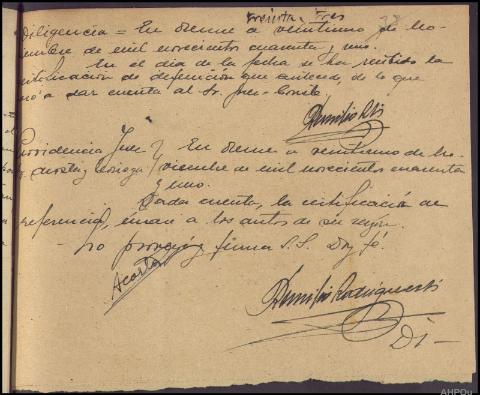 treinta y tres
33
Diligencia = En Orense a veintiuno de No-
viembre de mil novecientos cuarenta y uno.
En el día de la fecha se ha recibido la
certificación de defunción que antecede, de lo que
voy a dar cuenta al Sr. Juez. Consta.
Providencia Juez En Orense a veintiuno de No-
Acosta y viembre de mil novecientos cuarenta
y uno.
Dada cuenta, la certificación de
referencia, únase a los autos de su razón.
Lo proveyó y firma S.S. Doy fé.
Acosta
Demifio Rodriguez
Di-
AHPOu